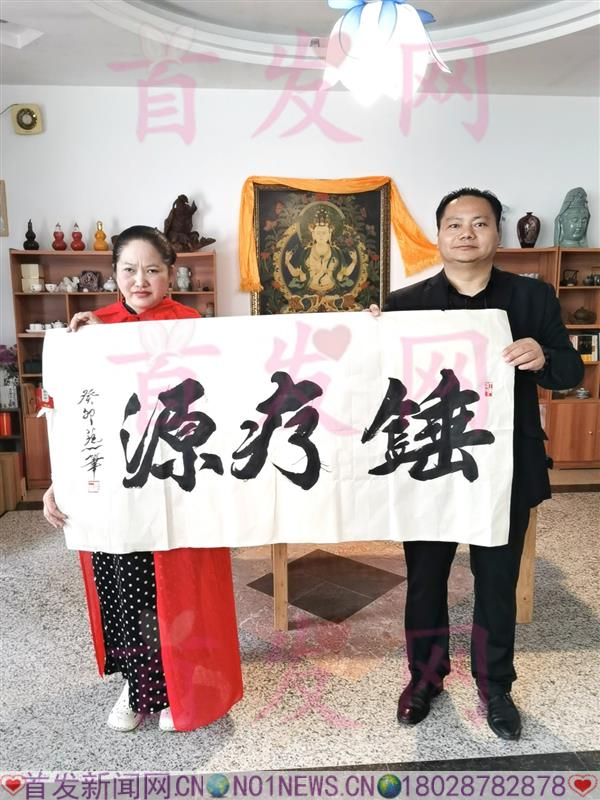 首发网
首发网
錘疗源
癸卯
首发网
首发新闻网.CN NO1NEWS.CN 18028782878